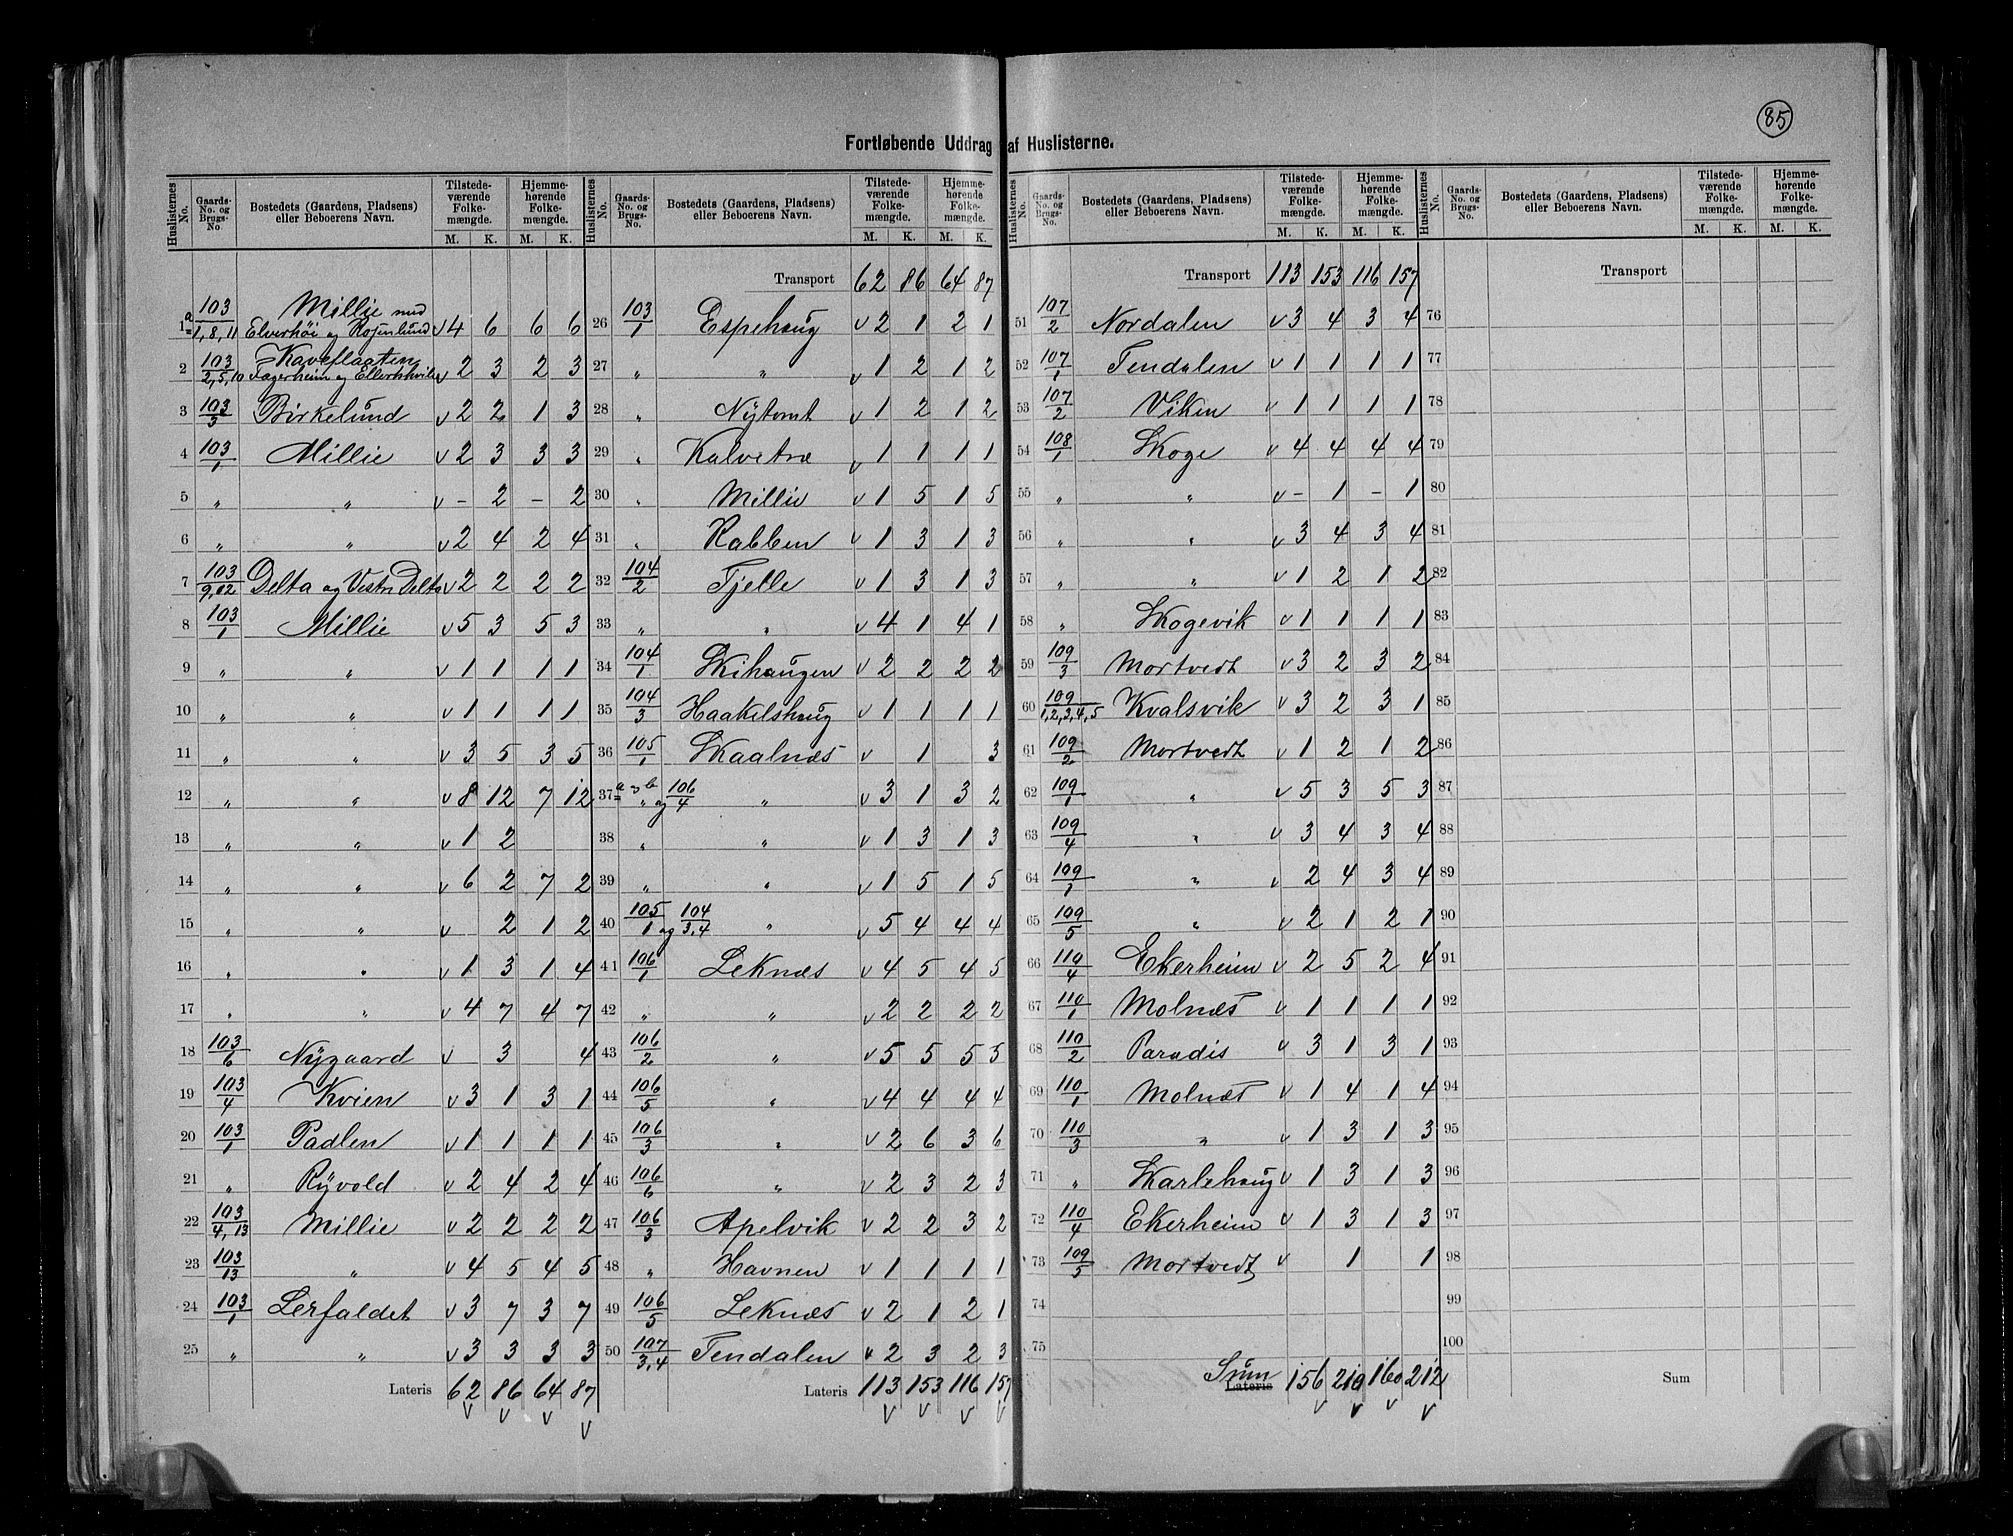 85
Fortløbende Uddrag af Huslisterne.
Huslisternes No. | Gaards-No. og Brugs-No. | Bostedets (Gaardens, Pladsens) eller Beboerens Navn. | Tilstedeværende Folkemængde. M. K. | Hjemmehørende Folkemængde. M. K.
1 a= 103/1,8,11 Millie med Elverhöi og Rosenlund v 4 6 6 6
2 103/2,5,10 Kaveflaaten Fagerheim og Ellershvile v 2 3 2 3
3 103/3 Birkelund v 2 2 1 3
4 103/1 Millie v 2 3 3 3
5 " " v - 2 - 2
6 " " v 2 4 2 4
7 103/9,12 Delta og Vestre Delta v 2 2 2 2
8 103/1 Millie v 5 3 5 3
9 " " v 1 1 1 1
10 " " v 1 1 1 1
11 " " v 3 5 3 5
12 " " v 8 12 7 12
13 " " v 1 2
14 " " v 6 2 7 2
15 " " v 2 1 2
16 " " v 1 3 1 4
17 " " v 4 7 4 7
18 103/6 Nÿgaard v 3 4
19 103/4 Kvien v 3 1 3 1
20 103/1 Padlen v 1 1 1 1
21 " Rÿvold v 2 4 2 4
22 103/4,13 Millie v 2 2 2 2
23 103/13 " v 4 5 4 5
24 103/1 Lerfaldet v 3 7 3 7
25 " " v 3 3 3 3
Lateris 62 86 64 87
v v v v
Huslisternes No. | Gaards-No. og Brugs-No. | Bostedets (Gaardens, Pladsens) eller Beboerens Navn. | Tilstedeværende Folkemængde. M. K. | Hjemmehørende Folkemængde. M. K.
Transport 62 86 64 87
26 103/1 Espehaug v 2 1 2 1
27 " " v 1 2 1 2
28 " Nÿtomt v 1 2 1 2
29 " Kalvetræ v 1 1 1 1
30 " Millie v 1 5 1 5
31 " Rabben v 1 3 1 3
32 104/2 Tjelle v 1 3 1 3
33 " " v 4 1 4 1
34 104/1 Skihaugen v 2 2 2 2
35 104/3 Haakelshaug v 1 1 1 1
36 105/1 Skaalnæs v 1 3
37 a og b = " og 106/4 " v 3 1 3 2
38 " " v 1 3 1 3
39 " " v 1 5 1 5
40 105/1 og 104/3,4 " v 5 4 4 4
41 106/1 Leknæs v 4 5 4 5
42 " " v 2 2 2 2
43 106/2 " v 5 5 5 5
44 106/5 " v 4 4 4 4
45 106/3 " v 2 6 3 6
46 106/6 " v 2 3 2 3
47 106/3 Apelvik v 2 2 3 2
48 " Havnen v 1 1 1 1
49 106/5 Leknæs v 2 1 2 1
50 107/3,4 Tendalen v 2 3 2 3
Lateris 113 153 116 157
v v v v
Huslisternes No. | Gaards-No. og Brugs-No. | Bostedets (Gaardens, Pladsens) eller Beboerens Navn. | Tilstedeværende Folkemængde. M. K. | Hjemmehørende Folkemængde. M. K.
Transport 113 153 116 157
51 107/2 Nordalen v 3 4 3 4
52 107/1 Tendalen v 1 1 1 1
53 107/2 Viken v 1 1 1 1
54 108/1 Skoge v 4 4 4 4
55 " " v - 1 - 1
56 " " v 3 4 3 4
57 " " v 1 2 1 2
58 " Skogevik v 1 1 1 1
59 109/3 Mortvedt v 3 2 3 2
60 109/1,2,3,4,5 Kvalsvik v 3 2 3 1
61 109/2 Mortvedt v 1 2 1 2
62 109/1 " v 5 3 5 3
63 109/4 " v 3 4 3 4
64 109/1 " v 2 4 3 4
65 109/5 " v 2 1 2 1
66 110/4 Ekerheim v 2 5 2 4
67 110/1 Molnæs v 1 1 1 1
68 110/2 Paradis v 3 1 3 1
69 110/1 Molnæs v 1 4 1 4
70 110/3 " v 1 3 1 3
71 " Skarlehaug v 1 3 1 3
72 110/4 Ekerheim v 1 3 1 3
73 109/5 Mortvedt v 1 1
74
75
Süm Lateris 156 210 160 212
v v v v
Huslisternes No. | Gaards-No. og Brugs-No. | Bostedets (Gaardens, Pladsens) eller Beboerens Navn. | Tilstedeværende Folkemængde. M. K. | Hjemmehørende Folkemængde. M. K.
Transport
76
77
78
79
80
81
82
83
84
85
86
87
88
89
90
91
92
93
94
95
96
97
98
99
100
Sum